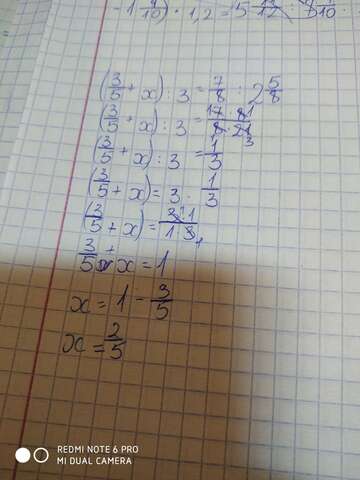 - 1 1/10) · 1,2 = 5
(3/5 + x) : 3 = 7/8 : 2 5/8
(3/5 + x) : 3 = 17 · 81/8 · 213
(3/5 + x) : 3 = 1/3
(3/5 + x) = 3 · 1/3
(3/5 + x) = 3 · 1/1 · 3
3/5 + x = 1
x = 1 - 3/5
x = 2/5
REDMI NOTE 6 PRO
MI DUAL CAMERA